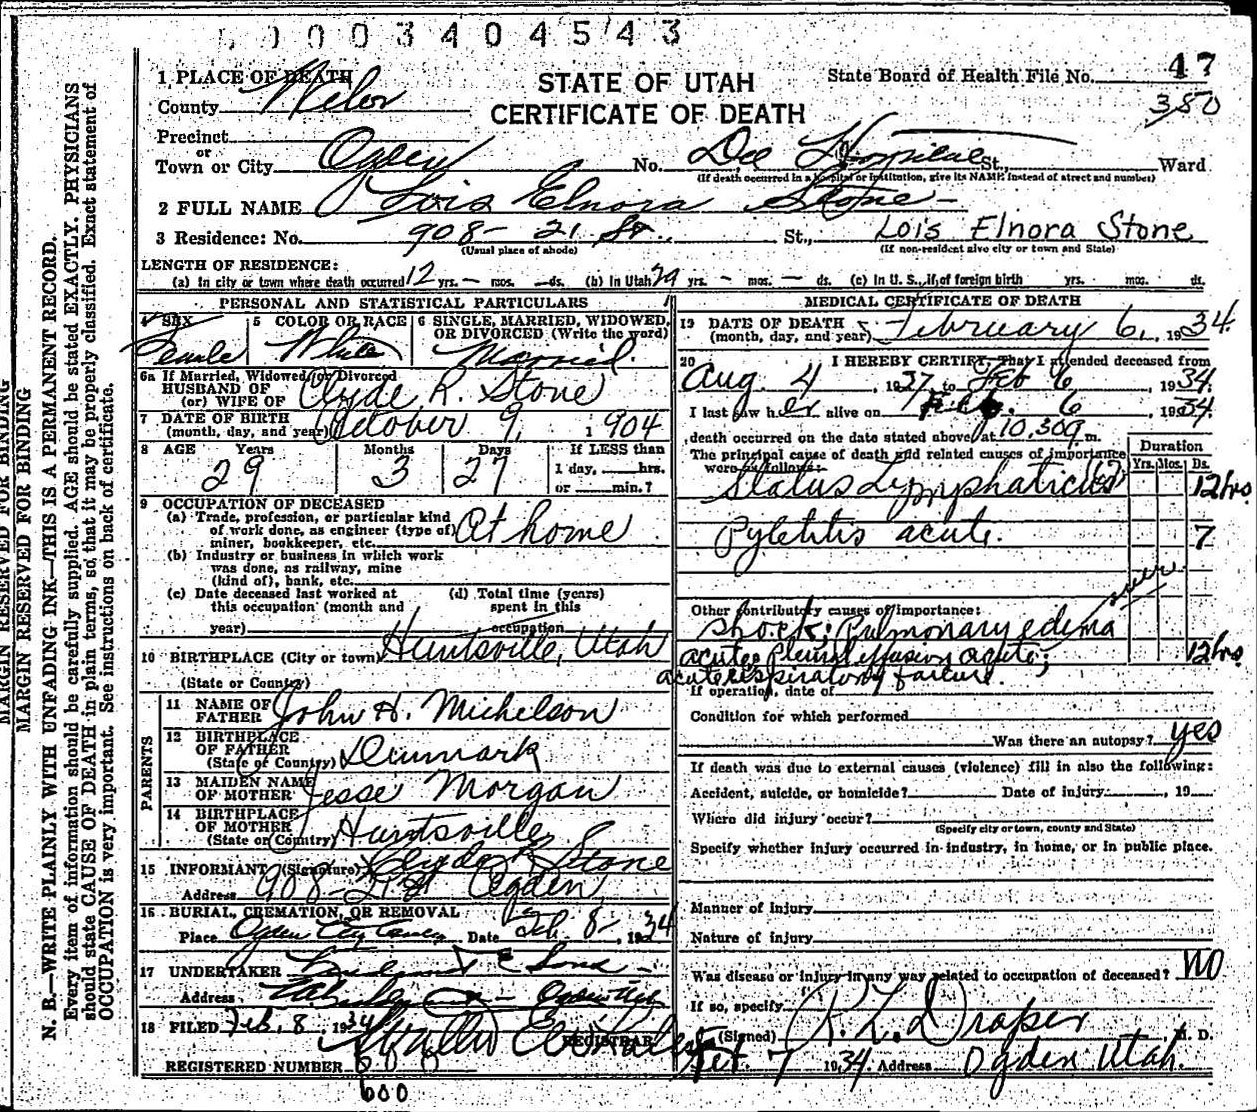 0003404543
1 PLACE OF DEATH
County Weber
Precinct
or
Town or City Ogden No. Dee Hospital St., Ward
(If death occurred in a hospital or institution, give its NAME instead of street and number)
STATE OF UTAH
CERTIFICATE OF DEATH
State Board of Health File No. 47
350
2 FULL NAME Lois Elnora Stone
3 Residence: No. 908- 21 St. St., Lois Elnora Stone
(Usual place of abode) (If non-resident give city or town and State)
LENGTH OF RESIDENCE:
(a) In city or town where death occurred 12 yrs. - mos. - ds. (b) In Utah 29 yrs. - mos. - ds. (c) In U. S., if of foreign birth yrs. mos. ds.
PERSONAL AND STATISTICAL PARTICULARS
4 SEX Female
5 COLOR OR RACE White
6 SINGLE, MARRIED, WIDOWED, OR DIVORCED (Write the word) Married.
6a If Married, Widowed (or) Divorced
HUSBAND OF
(or) WIFE OF Clyde R. Stone
7 DATE OF BIRTH
(month, day, and year) October 9, 1904
8 AGE Years 29 Months 3 Days 27 If LESS than
1 day, hrs.
or min.?
9 OCCUPATION OF DECEASED
(a) Trade, profession, or particular kind
of work done, as engineer (type of)
miner, bookkeeper, etc. At home
(b) Industry or business in which work
was done, as railway, mine
(kind of), bank, etc.
(c) Date deceased last worked at
this occupation (month and
year)
(d) Total time (years)
spent in this
occupation
10 BIRTHPLACE (City or town) Huntsville, Utah
(State or Country)
PARENTS
11 NAME OF
FATHER John H. Michelson
12 BIRTHPLACE
OF FATHER
(State or Country) Denmark
13 MAIDEN NAME
OF MOTHER Jesse Morgan
14 BIRTHPLACE
OF MOTHER
(State or Country) Huntsville
15 INFORMANT (Signature) Clyde R. Stone
Address 908-21 St Ogden
16 BURIAL, CREMATION, OR REMOVAL
Place Ogden City Date Feb. 8- , 1934
17 UNDERTAKER
Address
18 FILED Feb. 8 , 1934
REGISTRAR
REGISTERED NUMBER
600
MEDICAL CERTIFICATE OF DEATH
19 DATE OF DEATH
(month, day, and year) February 6, , 1934.
20 I HEREBY CERTIFY, That I attended deceased from
Aug. 4 , 1927, to Feb 6 , 1934.
I last saw her alive on Feb. 6 1934.
death occurred on the date stated above at 10.30 m.
The principal cause of death and related causes of importance
were as follows:
Duration
Yrs. Mos. Ds.
Status Lymphaticus 12 hrs
Pyletitis acute. 7
Other contributory causes of importance:
Shock; Pulmonary edema
acute; Pleural effusion acute; 12 hrs
acute respiratory failure.
If operation, date of
Condition for which performed
Was there an autopsy? yes
If death was due to external causes (violence) fill in also the following:
Accident, suicide, or homicide? Date of injury , 19
Where did injury occur?
(Specify city or town, county and State)
Specify whether injury occurred in industry, in home, or in public place.
Manner of injury
Nature of injury
Was disease or injury in any way related to occupation of deceased? NO
If so, specify
(Signed) R. L. Draper M. D.
Feb. 7 1934. Address Ogden Utah.
MARGIN RESERVED FOR BINDING
MARGIN RESERVED FOR BINDING
N. B.—WRITE PLAINLY WITH UNFADING INK—THIS IS A PERMANENT RECORD.
Every item of information should be carefully supplied. AGE should be stated EXACTLY. PHYSICIANS
should state CAUSE OF DEATH in plain terms, so that it may be properly classified. Exact statement of
OCCUPATION is very important. See instructions on back of certificate.